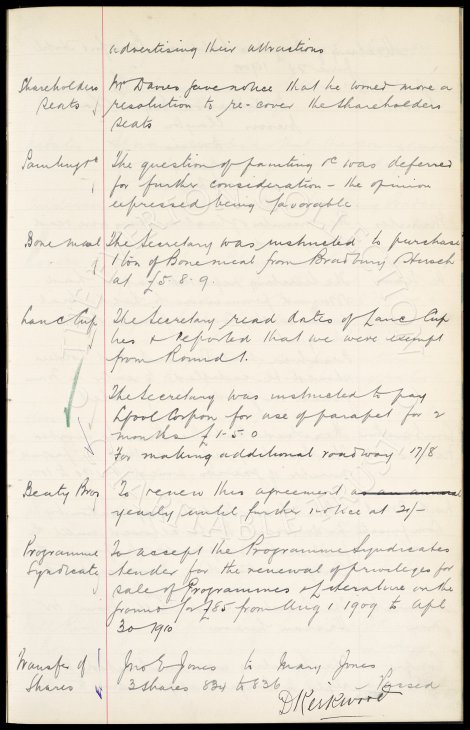 advertising their attractions
Shareholders Seats
Mr Davies gave notice that he would move a
resolution to re-cover the shareholders
seats
Painting &c
The question of painting &c was deferred
for further consideration - the opinion
expressed being favorable
Bone meal
The Secretary was instructed to purchase
1 ton of Bonemeal from Bradbury
at £5-8-9.
Lanc Cup
The Secretary read dates of Lanc Cup
ties & reported that we were exempt
from Round 1.
The Secretary was instructed to pay
Lpool Corpon for use of parapet for 2
months £1-5-0
For making additional roadway 17/8
Beaty Bros
To renew this agreement as an annual
yearly until further notice at 20/-
Programme Syndicate
To accept the Programme Syndicates
tender for the renewal of privileges for
sale of Programmes & Literature on the
ground for £85 from Aug 1 1909 to Apl
30 1910
Transfer of Shares
Jno E Jones to Mary Jones
3 shares 834 to 836 Passed
D Kirkwood